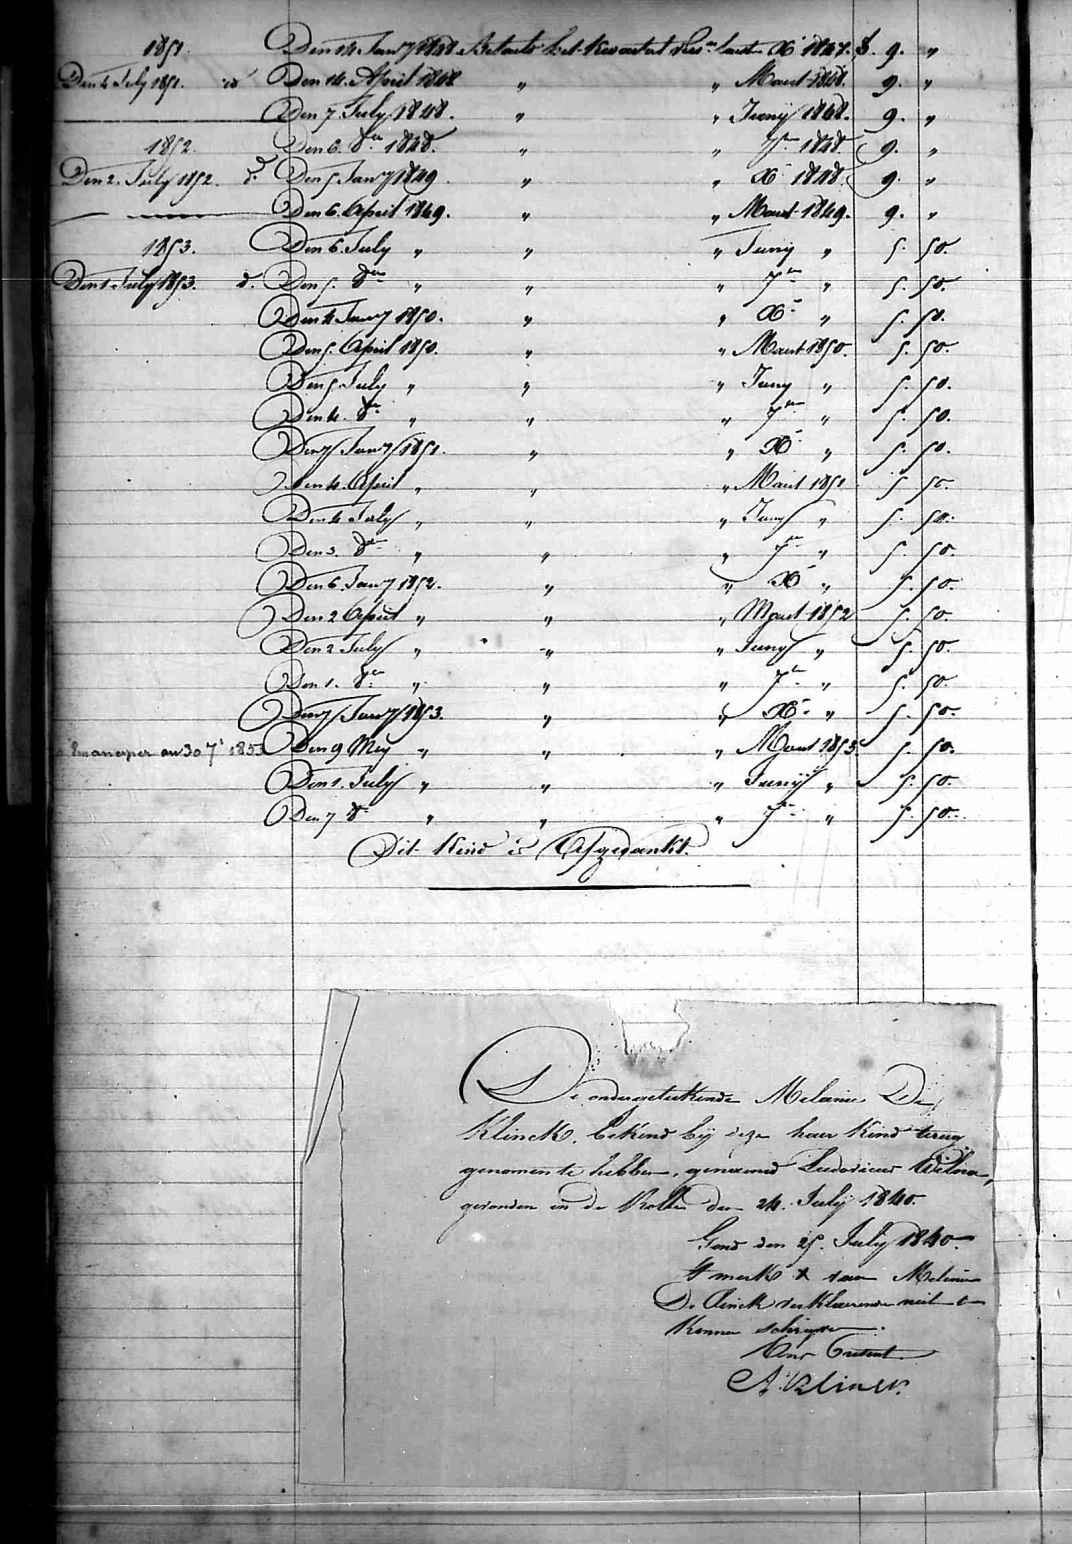 1851. Den 14 Jany 1848 Betaelt het Kwartael laest Xb 1847. f. 9. "
Den 4 July 1851. id Den 14. April 1848 " " Maart 1848. 9. "
Den 7 July 1848. " " Juny 1848. 9. "
1852. Den 6. 8er 1848. " " 7er 1848 9. "
Den 2. July 1852. d. Den 5 Jany 1849 " " Xb 1848. 9. "
Den 6. April 1849. " " Maart 1849. 9. "
1853. Den 6. July " " " Juny " 5. 50.
Den 1 July 1853. d. Den 5. 8er " " " 7er " 5. 50.
Den 4 Jany 1850. " " Xb " 5. 50.
Den 5. April 1850. " " Maart 1850. 5. 50.
Den 5 July " " " Juny " 5. 50.
Den 4. 8er " " " 7er " 5. 50.
Den 7 Jany 1851. " " Xb " 5. 50.
Den 4. April " " " Maart 1851 5. 50.
Den 4 July " " " Juny " 5. 50.
Den 3. 8er " " " 7er " 5. 50.
Den 6. Jany 1852. " " Xb " 5. 50.
Den 2 April " " " Maart 1852 5. 50.
Den 2 July " " " Juny " 5. 50.
Den 1. 8er " " " 7er " 5. 50.
Den 7 Jany 1853. " " Xb " 5. 50.
Emanciper au 30 7e 1853 Den 9 Mey " " " Maart 1853. 5. 50.
Den 1. July " " " Juny " 5. 50.
Den 7 8er " " " 7er " 5. 50.
Dit Kind is Afgedankt.
De ondergeteekende Melanie De
Klinck, bekend bij deze haer Kind terug
genomen te hebben, genaemd Ludovicus
gevonden in de Rolle den 24. July 1840.
Gend den 25. July 1840.
t merk X van Melanie
De Clinck verklaerende niet te
Konnen schryven.